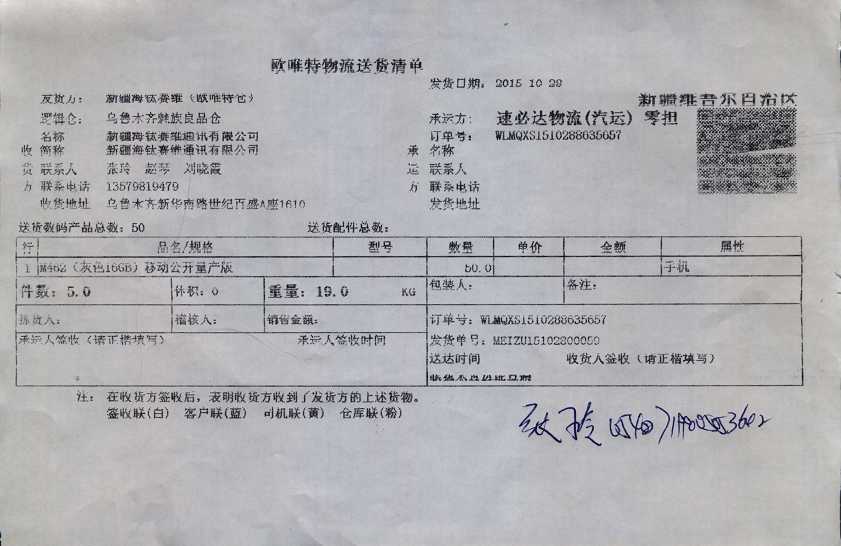 欧唯特物流送货清单
发货日期: 2015-10-29
新疆维吾尔自治区
发货方: 新疆海钛赛维(欧唯特仓)
逻辑仓: 乌鲁木齐魅族良品仓
承运方: 速必达物流(汽运) 零担
名称 新疆海钛赛维通讯有限公司
订单号: WLMQXS1510288635657
收 简称 新疆海钛赛维通讯有限公司
承 名称
货 联系人 张玲 赵琴 刘晓霞
运 联系人
方 联系电话 13579819479
方 联系电话
收货地址 乌鲁木齐新华南路世纪百盛A座1610
发货地址
送货数码产品总数: 50 送货配件总数:
行 品名/规格 型号 数量 单价 金额 属性
1 M462(灰色16GB)移动公开量产版 50.0 手机
件数: 5.0 体积: 0 重量: 19.0 KG 包装人: 备注:
拣货人: 稽核人: 销售金额: 订单号: WLMQXS1510288635657
承运人签收(请正楷填写) 承运人签收时间 发货单号: MEIZU15102800059
送达时间 收货人签收(请正楷填写)
注: 在收货方签收后，表明收货方收到了发货方的上述货物。
签收联(白) 客户联(蓝) 司机联(黄) 仓库联(粉)